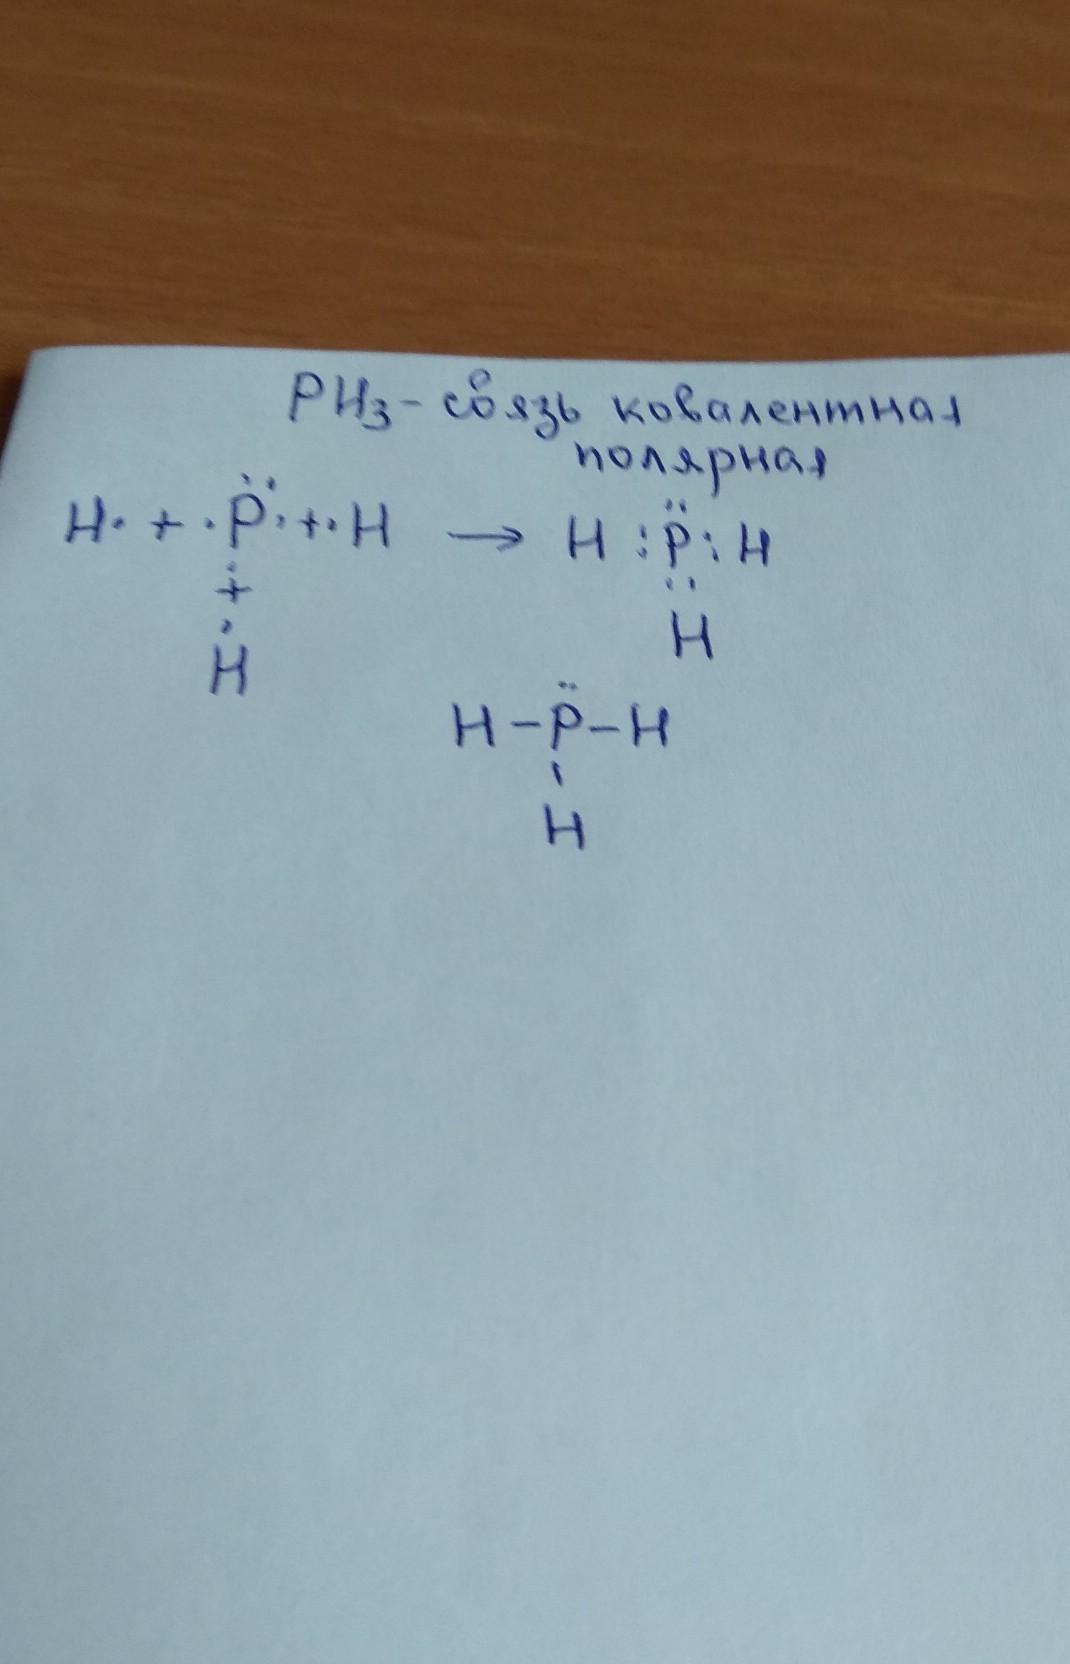 PH₃ - связь ковалентная
полярная
H· + ·P̈· + ·H → H :P̈: H
·
+
·
··
H
H
H – P̈ – H
|
H